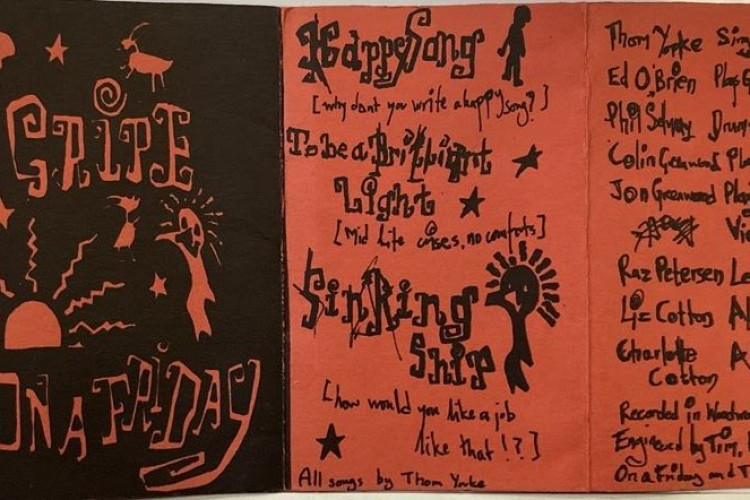 GRIPE
ON A FRIDAY
Happy Song
[why dont you write a happy song?]
To be a Brilliant
Light
[Mid life crises, no comforts]
Sinking
Ship
[how would you like a job
like that!?]
All songs by Thom Yorke
Thom Yorke Sin
Ed O'Brien Plays G
Phil Selway Drum
Colin Greenwood Pl
Jon Greenwood Pla
Vi
Raz Petersen L
Liz Cotton A
Charlotte A
Cotton
Recorded in
Engineered by Tim,
On a Friday and T